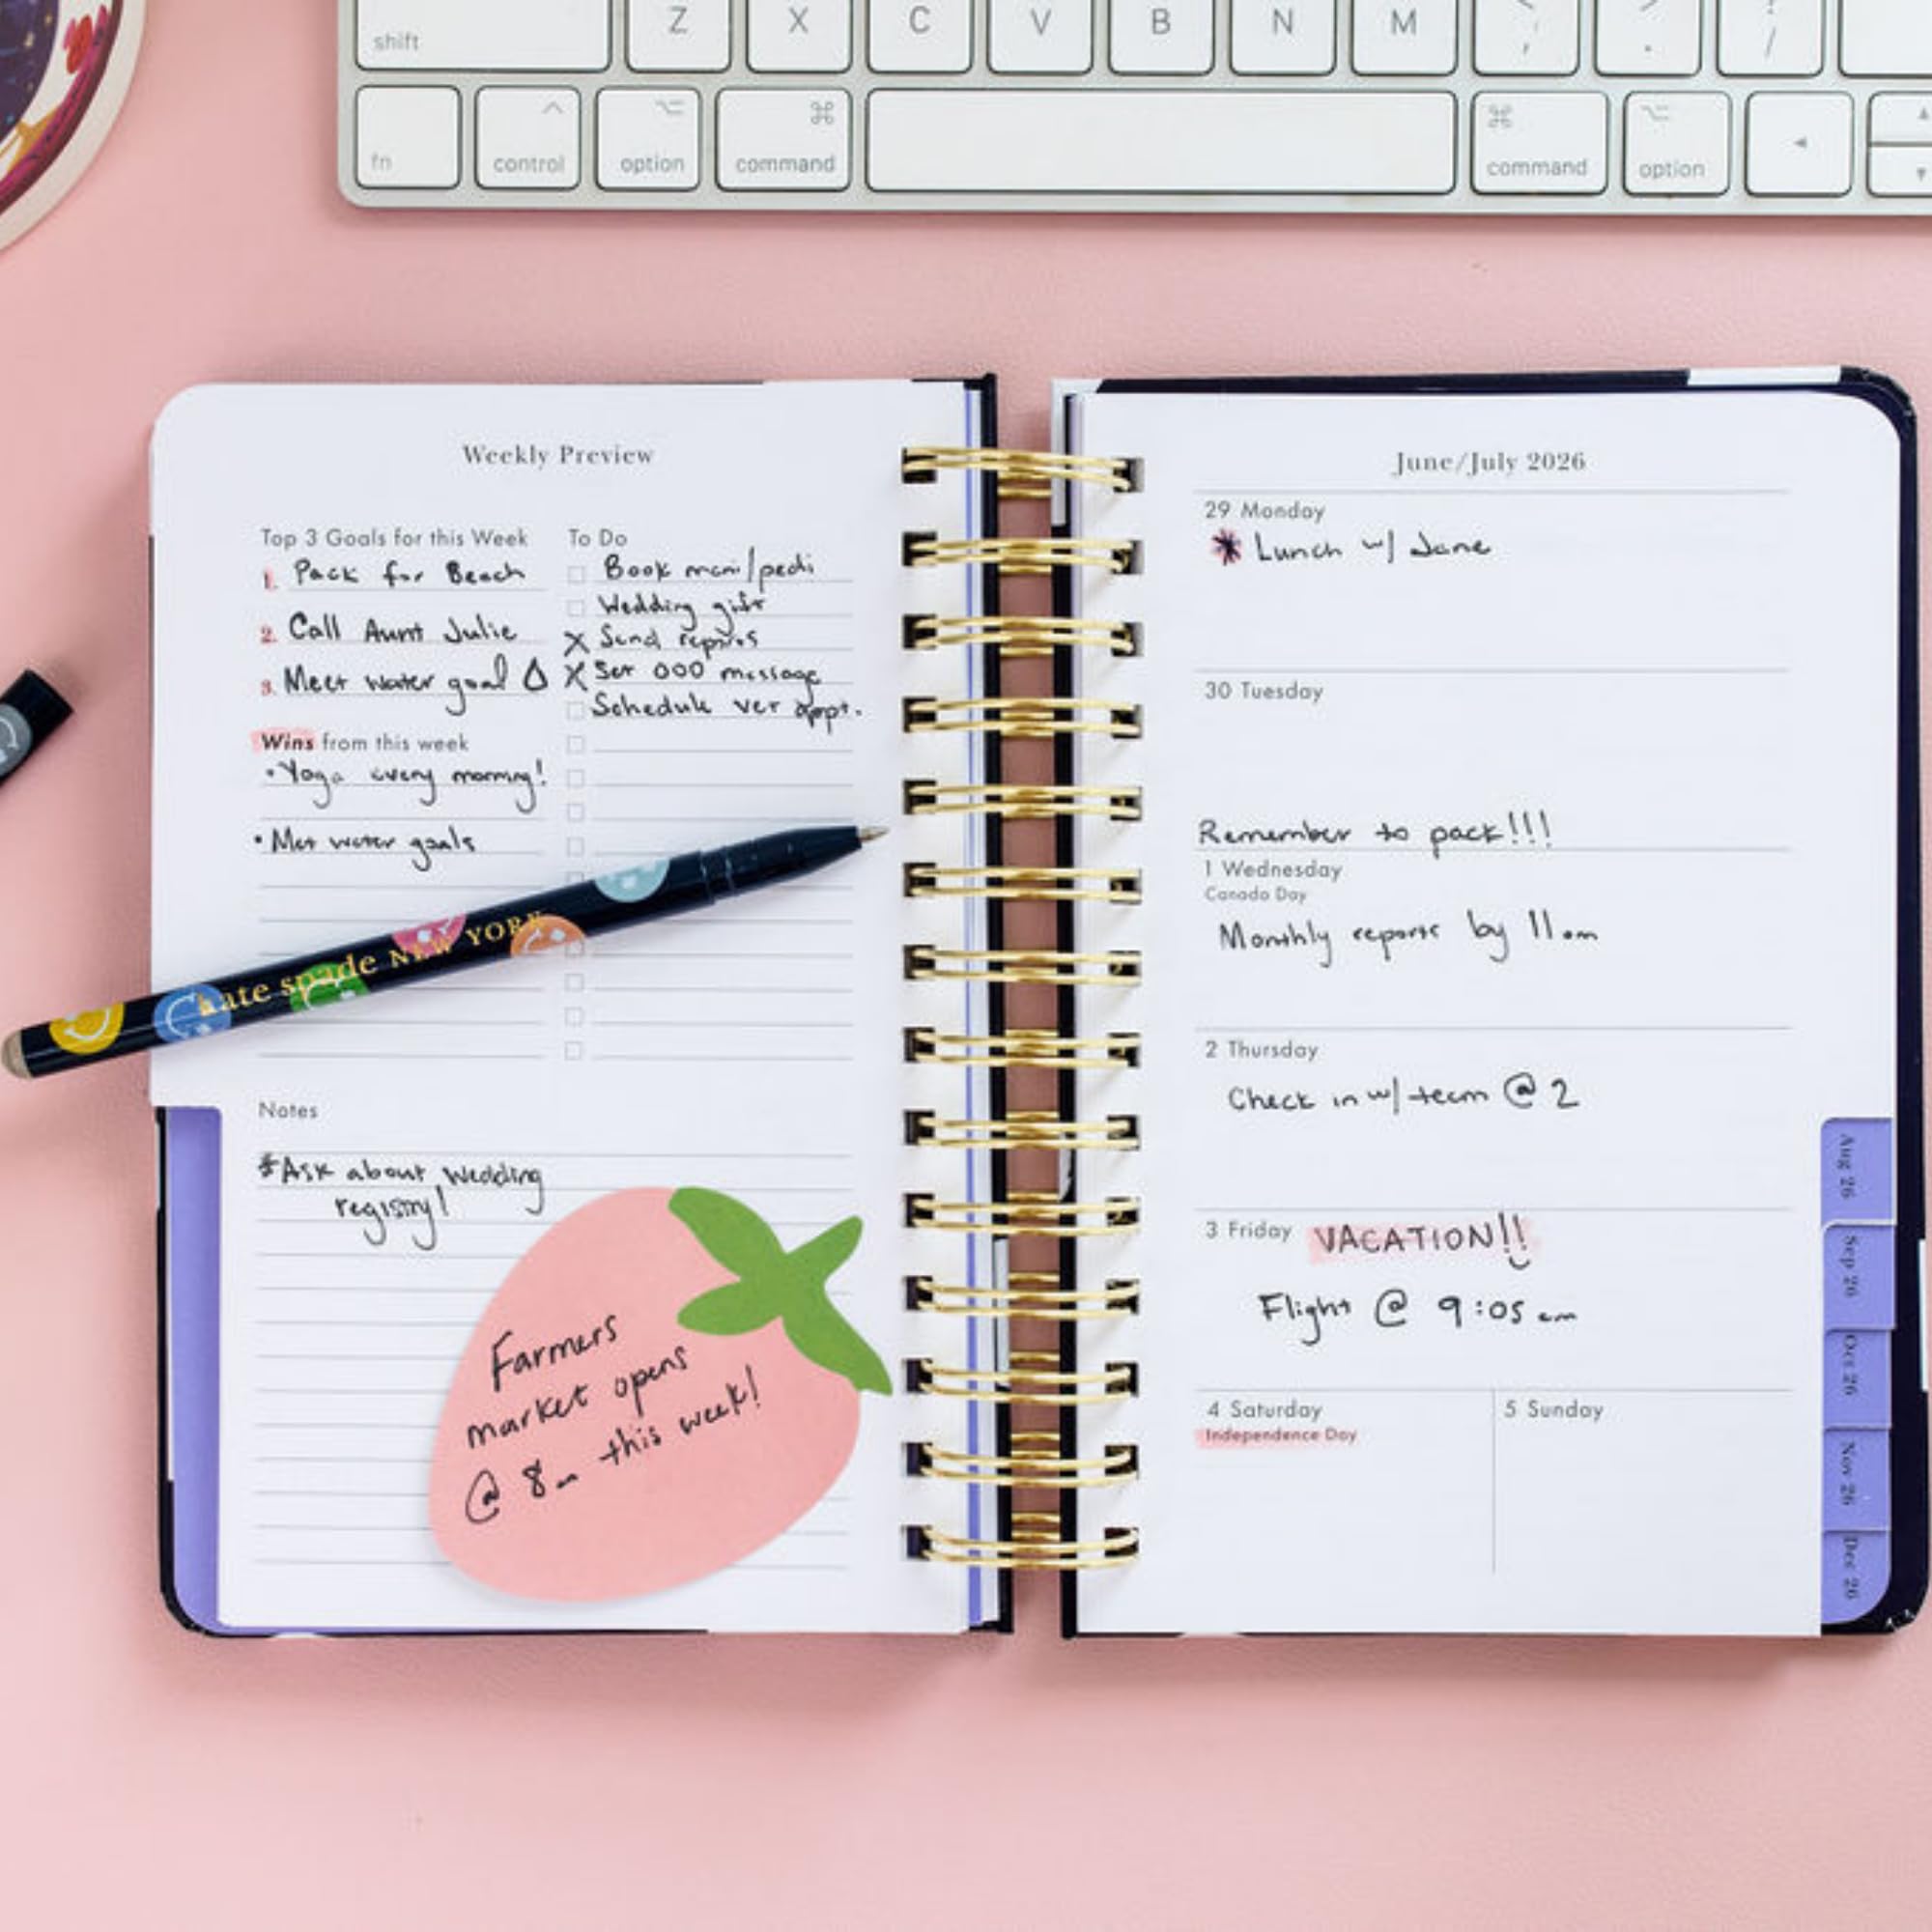 shift
Z
X
C
V
B
N
M
<
,
>
.
?
/
fn
control
option
command
command
option
Weekly Preview
Top 3 Goals for this Week
1. Pack for Beach
2. Call Aunt Julie
3. Meet water goal
Wins from this week
• Yoga every morning!
• Met water goals
To Do
Book mani/pedi
Wedding gift
X Send reports
X Set OOO message
Schedule vet appt.
kate spade NEW YORK
Notes
*Ask about wedding
registry!
Farmers
market opens
@ 8am this week!
June/July 2026
29 Monday
* Lunch w/ Jane
30 Tuesday
Remember to pack!!!
1 Wednesday
Canada Day
Monthly reports by 11am
2 Thursday
Check in w/ team @ 2
3 Friday VACATION!!
Flight @ 9:05 am
4 Saturday
Independence Day
5 Sunday
Aug 26
Sep 26
Oct 26
Nov 26
Dec 26